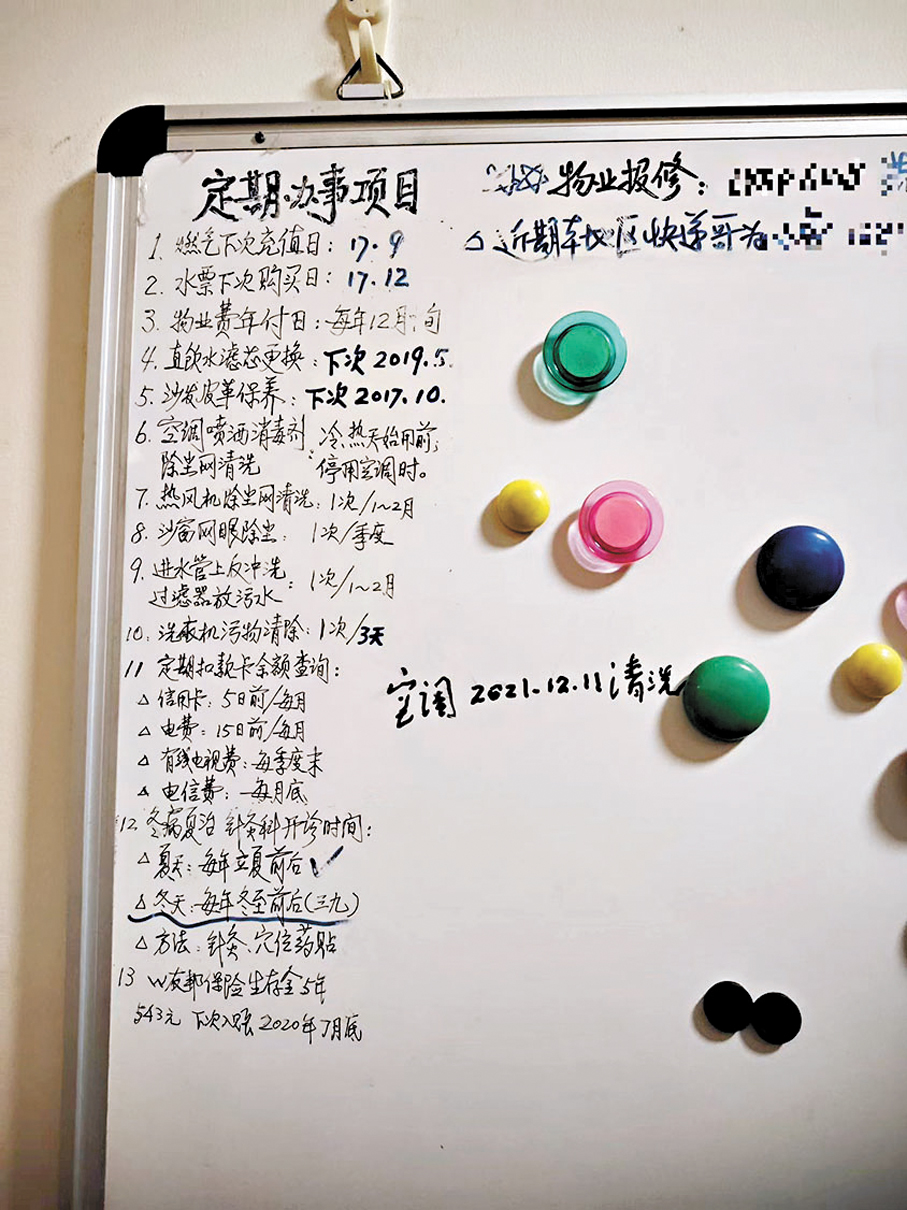 定期办事项目
1. 燃气下次充值日：17.9
2. 水票下次购买日：17.12
3. 物业费年付日：每年12月中旬
4. 直饮水滤芯更换：下次2019.5.
5. 沙发皮革保养：下次2017.10.
6. 空调喷洒消毒剂：冷、热天始用前，
除尘网清洗 停用空调时。
7. 热风机除尘网清洗：1次/1~2月
8. 沙窗网眼除尘：1次/季度
9. 进水管上反冲洗
过滤器放污水：1次/1~2月
10. 洗衣机污物清除：1次/3天
11 定期扣款卡余额查询：
△ 信用卡：5日前/每月
△ 电费：15日前/每月
△ 有线电视费：每季度末
△ 电信费：每月底
12. 冬病夏治 针灸科开诊时间：
△ 夏天：每年立夏前后✓
△ 冬天：每年冬至前后(三九)
△ 方法：针灸、穴位药贴
13 W友邦保险生存金5年
543元 下次入账2020年7月底
物业报修：
△ 近期本地区快递哥为
空调 2021.12.11清洗